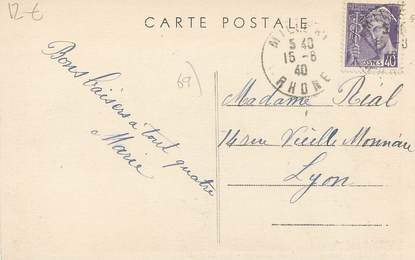 12€
CARTE POSTALE
5 40
15-6
40
RHONE
40
POSTES
69)
Bons baisers à tout quatre
Marie
Madame Réal
14 rue Vieille Monnaie
Lyon